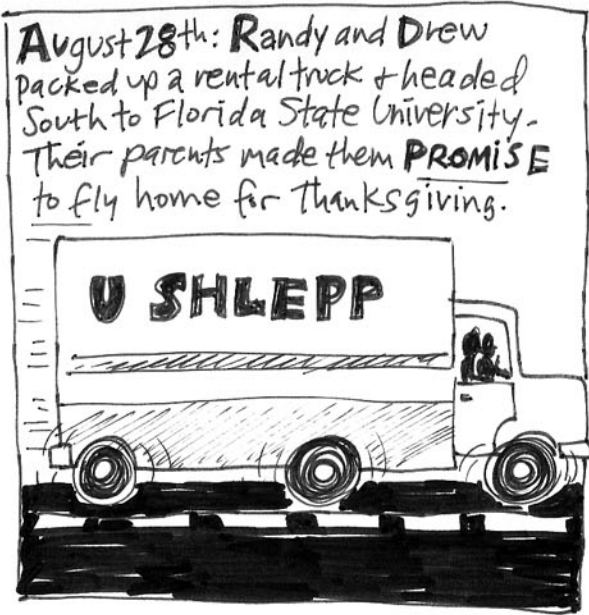 August 28th: Randy and Drew
packed up a rental truck & headed
South to Florida State University.
Their parents made them PROMiSE
to fly home for Thanksgiving.
U SHLEPP